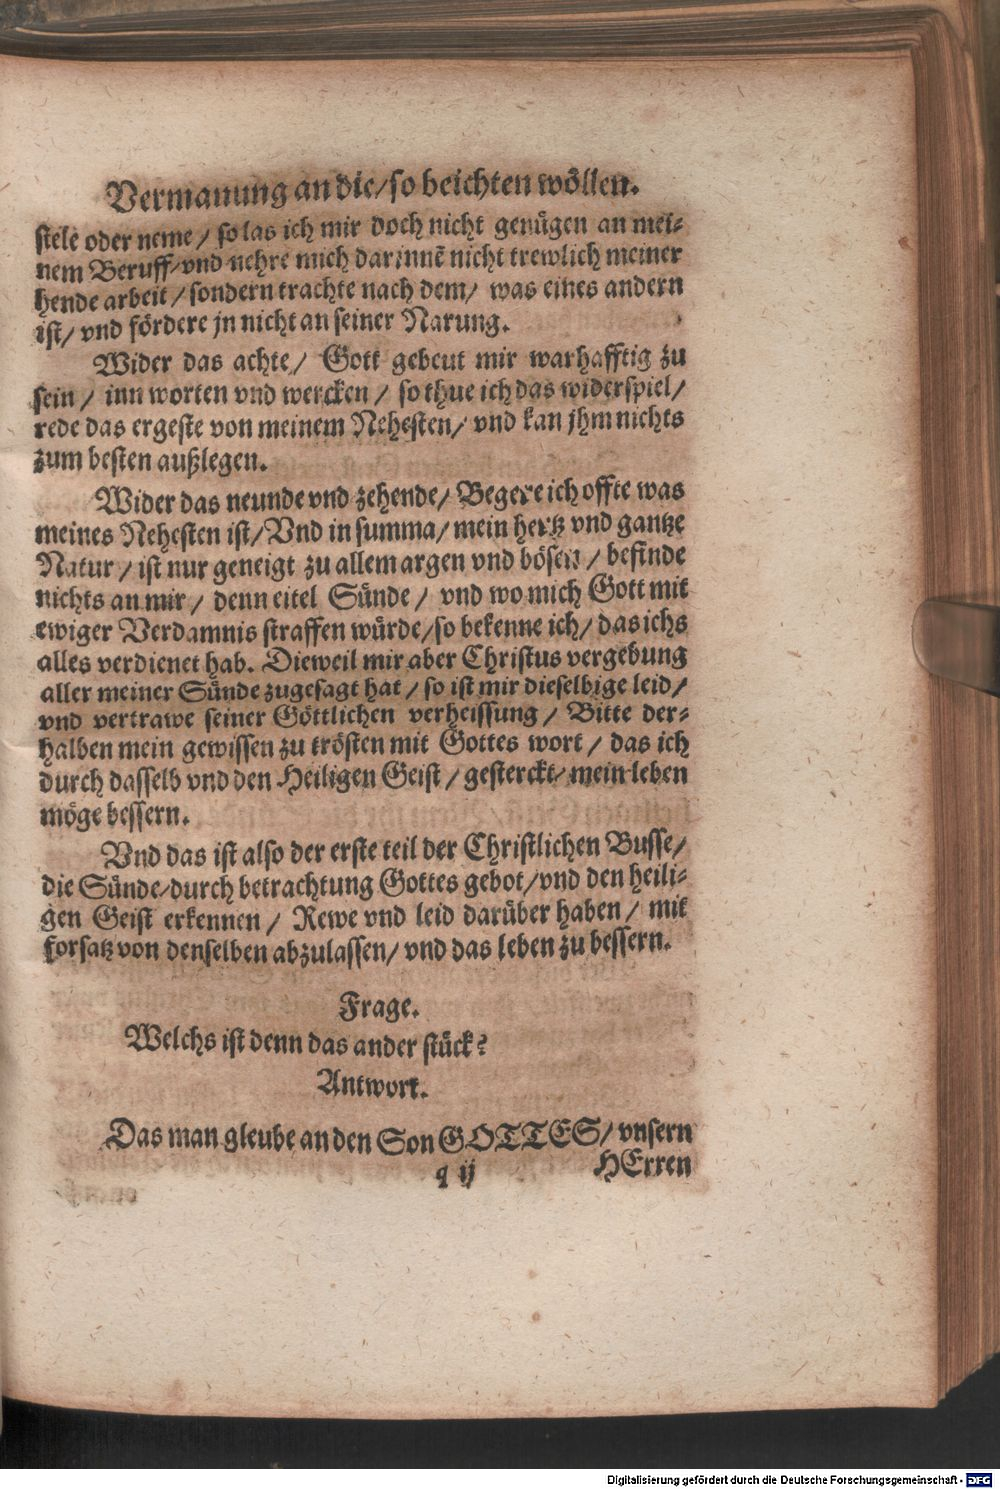 Vermanung an die/ so beichten wöllen.
stele oder neme/ so las ich mir doch nicht genügen an mei-
nem Beruff/ vnd nehre mich darinnē nicht trewlich meiner
hende arbeit/ sondern trachte nach dem/ was eines andern
ist/ vnd fördere jn nicht an seiner Narung.
Wider das achte/ Gott gebeut mir warhafftig zu
sein/ inn worten vnd wercken/ so thue ich das widerspiel/
rede das ergeste von meinem Nehesten/ vnd kan jhm nichts
zum besten außlegen.
Wider das neunde vnd zehende/ Begere ich offte was
meines Nehesten ist/ Vnd in summa/ mein hertz vnd gantze
Natur/ ist nur geneigt zu allem argen vnd bösen/ befinde
nichts an mir/ denn eitel Sünde/ vnd wo mich Gott mit
ewiger Verdamnis straffen würde/ so bekenne ich/ das ichs
alles verdienet hab. Dieweil mir aber Christus vergebung
aller meiner Sünde zugesagt hat/ so ist mir dieselbige leid/
vnd vertrawe seiner Göttlichen verheissung/ Bitte der-
halben mein gewissen zu trösten mit Gottes wort/ das ich
durch dasselb vnd den Heiligen Geist/ gesterckt/ mein leben
möge bessern.
Vnd das ist also der erste teil der Christlichen Busse/
die Sünde/ durch betrachtung Gottes gebot/ vnd den heili-
gen Geist erkennen/ Rewe vnd leid darüber haben/ mit
forsatz von denselben abzulassen/ vnd das leben zu bessern.
Frage.
Welchs ist denn das ander stück?
Antwort.
Das man gleube an den Son GOTTES/ vnsern
q ij HErren
Digitalisierung gefördert durch die Deutsche Forschungsgemeinschaft - DFG